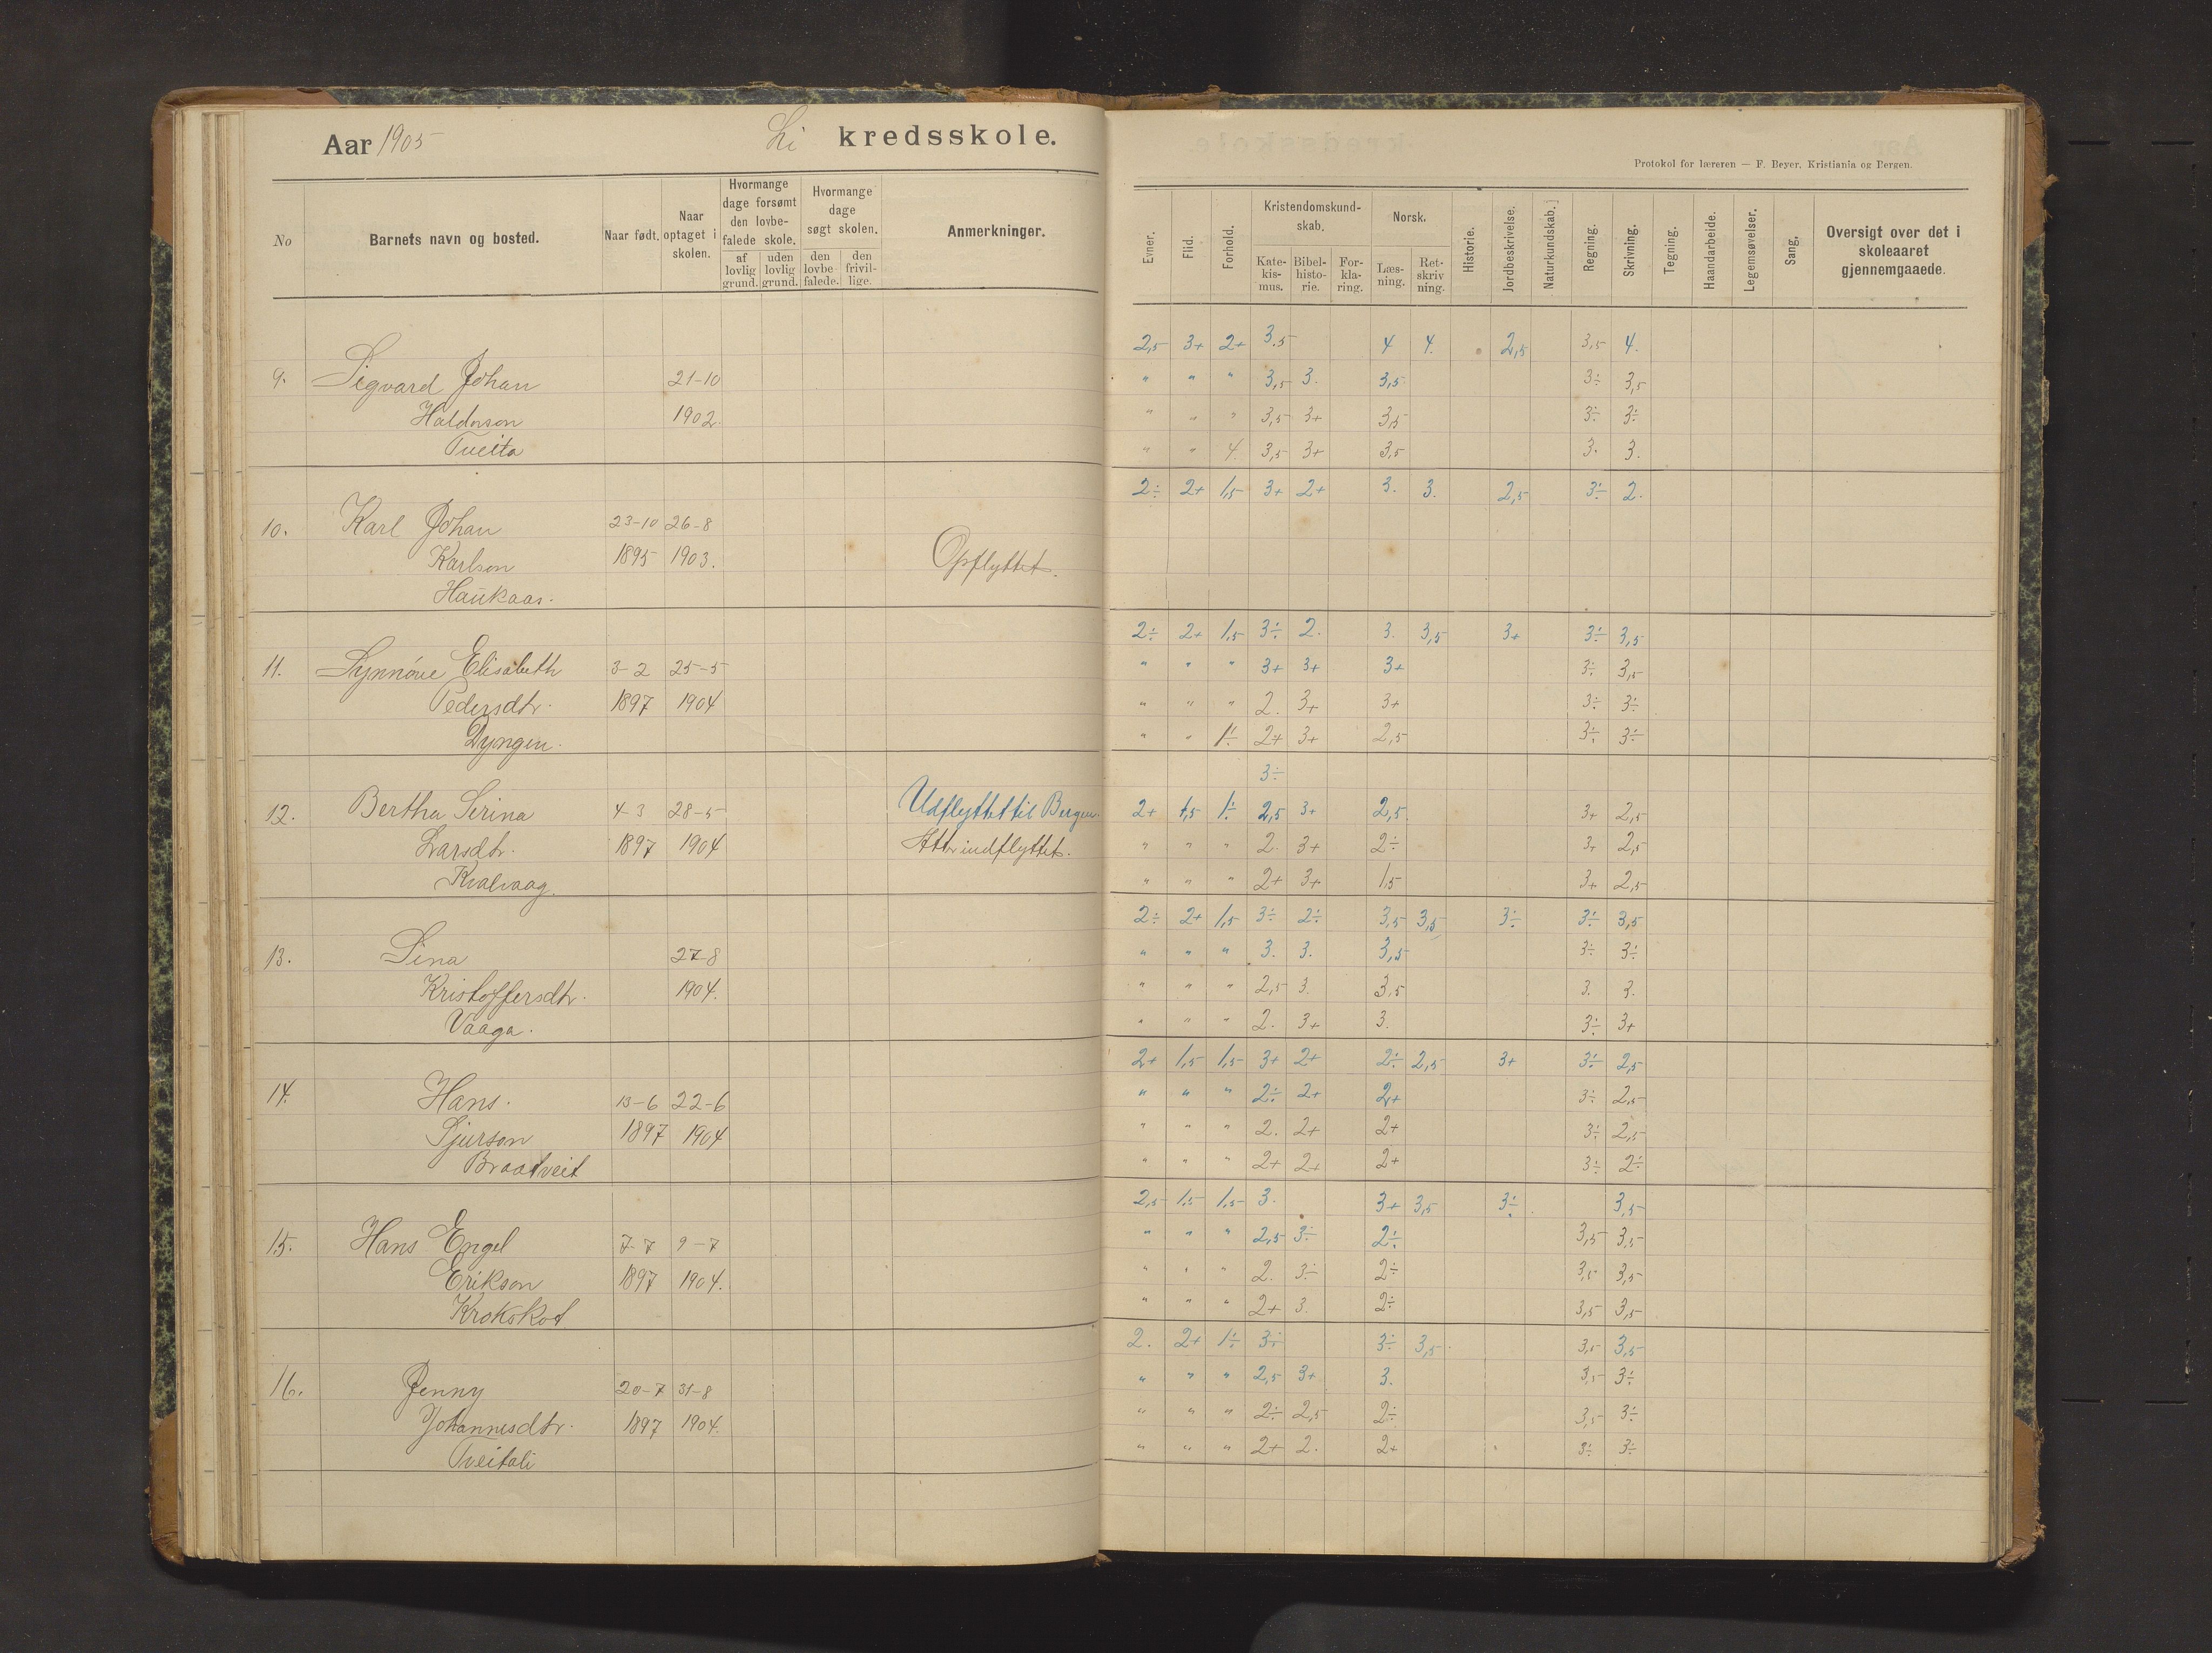 Aar 1905
Li kredsskole.
No
Barnets navn og bosted.
Naar født.
Naar optaget i skolen.
Hvormange dage forsømt den lovbefalede skole.
af lovlig grund.
uden lovlig grund.
Hvormange dage søgt skolen.
den lovbefalede.
den frivillige.
Anmerkninger.
9. Sigvard Johan 21-10
Haldorson 1902.
Tveita
10. Karl Johan 23-10 26-8
Karlson 1895 1903. Opflyttet.
Haukaas.
11. Synnøve Elisabeth 3-2 25-5
Pedersdtr. 1897 1904
Dyngen.
12. Bertha Serina 4-3 28-5 Udflyttet til Bergen.
Larsdtr. 1897 1904 Atter indflyttet.
Kvalvaag.
13. Sina 27-8
Kristoffersdtr. 1904.
Vaaga.
14. Hans. 13-6 22-6
Sjurson 1897 1904
Braatveit
15. Hans Engel 7-7 9-7
Erikson 1897 1904.
Krokskot
16. Jenny 20-7 31-8
Johannesdtr. 1897 1904.
Tveitali
Protokol for læreren — F. Beyer, Kristiania og Bergen.
Evner.
Flid.
Forhold.
Kristendomskundskab.
Katekismus.
Bibelhistorie.
Forklaring.
Norsk.
Læsning.
Retskrivning.
Historie.
Jordbeskrivelse.
Naturkundskab.
Regning.
Skrivning.
Tegning.
Haandarbeide.
Legemsøvelser.
Sang.
Oversigt over det i skoleaaret gjennemgaaede.
2,5 3+ 2+ 3,5 4 4. 2,5 3,5 4.
" " " 3,5 3. 3,5 3÷ 3,5
" " " 3,5 3+ 3,5 3÷ 3÷
" " 4. 3,5 3+ 3,5 3. 3.
2÷ 2+ 1,5 3+ 2+ 3. 3. 2,5 3÷ 2.
2÷ 2+ 1,5 3÷ 2. 3. 3,5 3+ 3÷ 3,5
" " " 3+ 3+ 3+ 3÷ 3,5
" " " 2. 3+ 3+ 3÷ 3÷
" " 1÷ 2+ 3+ 2,5 3÷ 3÷
3÷
2+ 1,5 1÷ 2,5 3+ 2,5. 3+ 2,5
" " " 2. 3+ 2÷ 3+ 2,5
" " " 2+ 3+ 1,5 3+ 2,5
2÷ 2+ 1,5 3÷ 2÷ 3,5 3,5 3÷ 3÷ 3,5
" " " 3. 3. 3,5 3÷ 3÷
" " " 2,5 3. 3,5 3. 3.
" " " 2. 3+ 3. 3÷ 3+
2+ 1,5 1,5 3+ 2+ 2÷ 2,5 3+ 3÷ 2,5
" " " 2÷ 2+ 2+ 3÷ 2,5
" " " 2. 2+ 2+ 3÷ 2,5
" " " 2+ 2+ 2+ 3÷ 2÷
2,5 1,5 1,5 3. 3+ 3,5 3÷ 3,5
" " " 2,5 3÷ 2÷ 3,5 3,5
" " " 2. 3÷ 2÷ 3,5 3,5
" " " 2+ 3. 2÷ 3,5 3,5
2. 2+ 1÷ 3÷ 3÷ 3,5. 3,5 3,5
" " " 2,5 3+ 3. 3,5 3÷
" " " 2÷ 2,5 2÷ 3,5 3÷
" " " 2+ 2. 2+ 3÷ 3÷